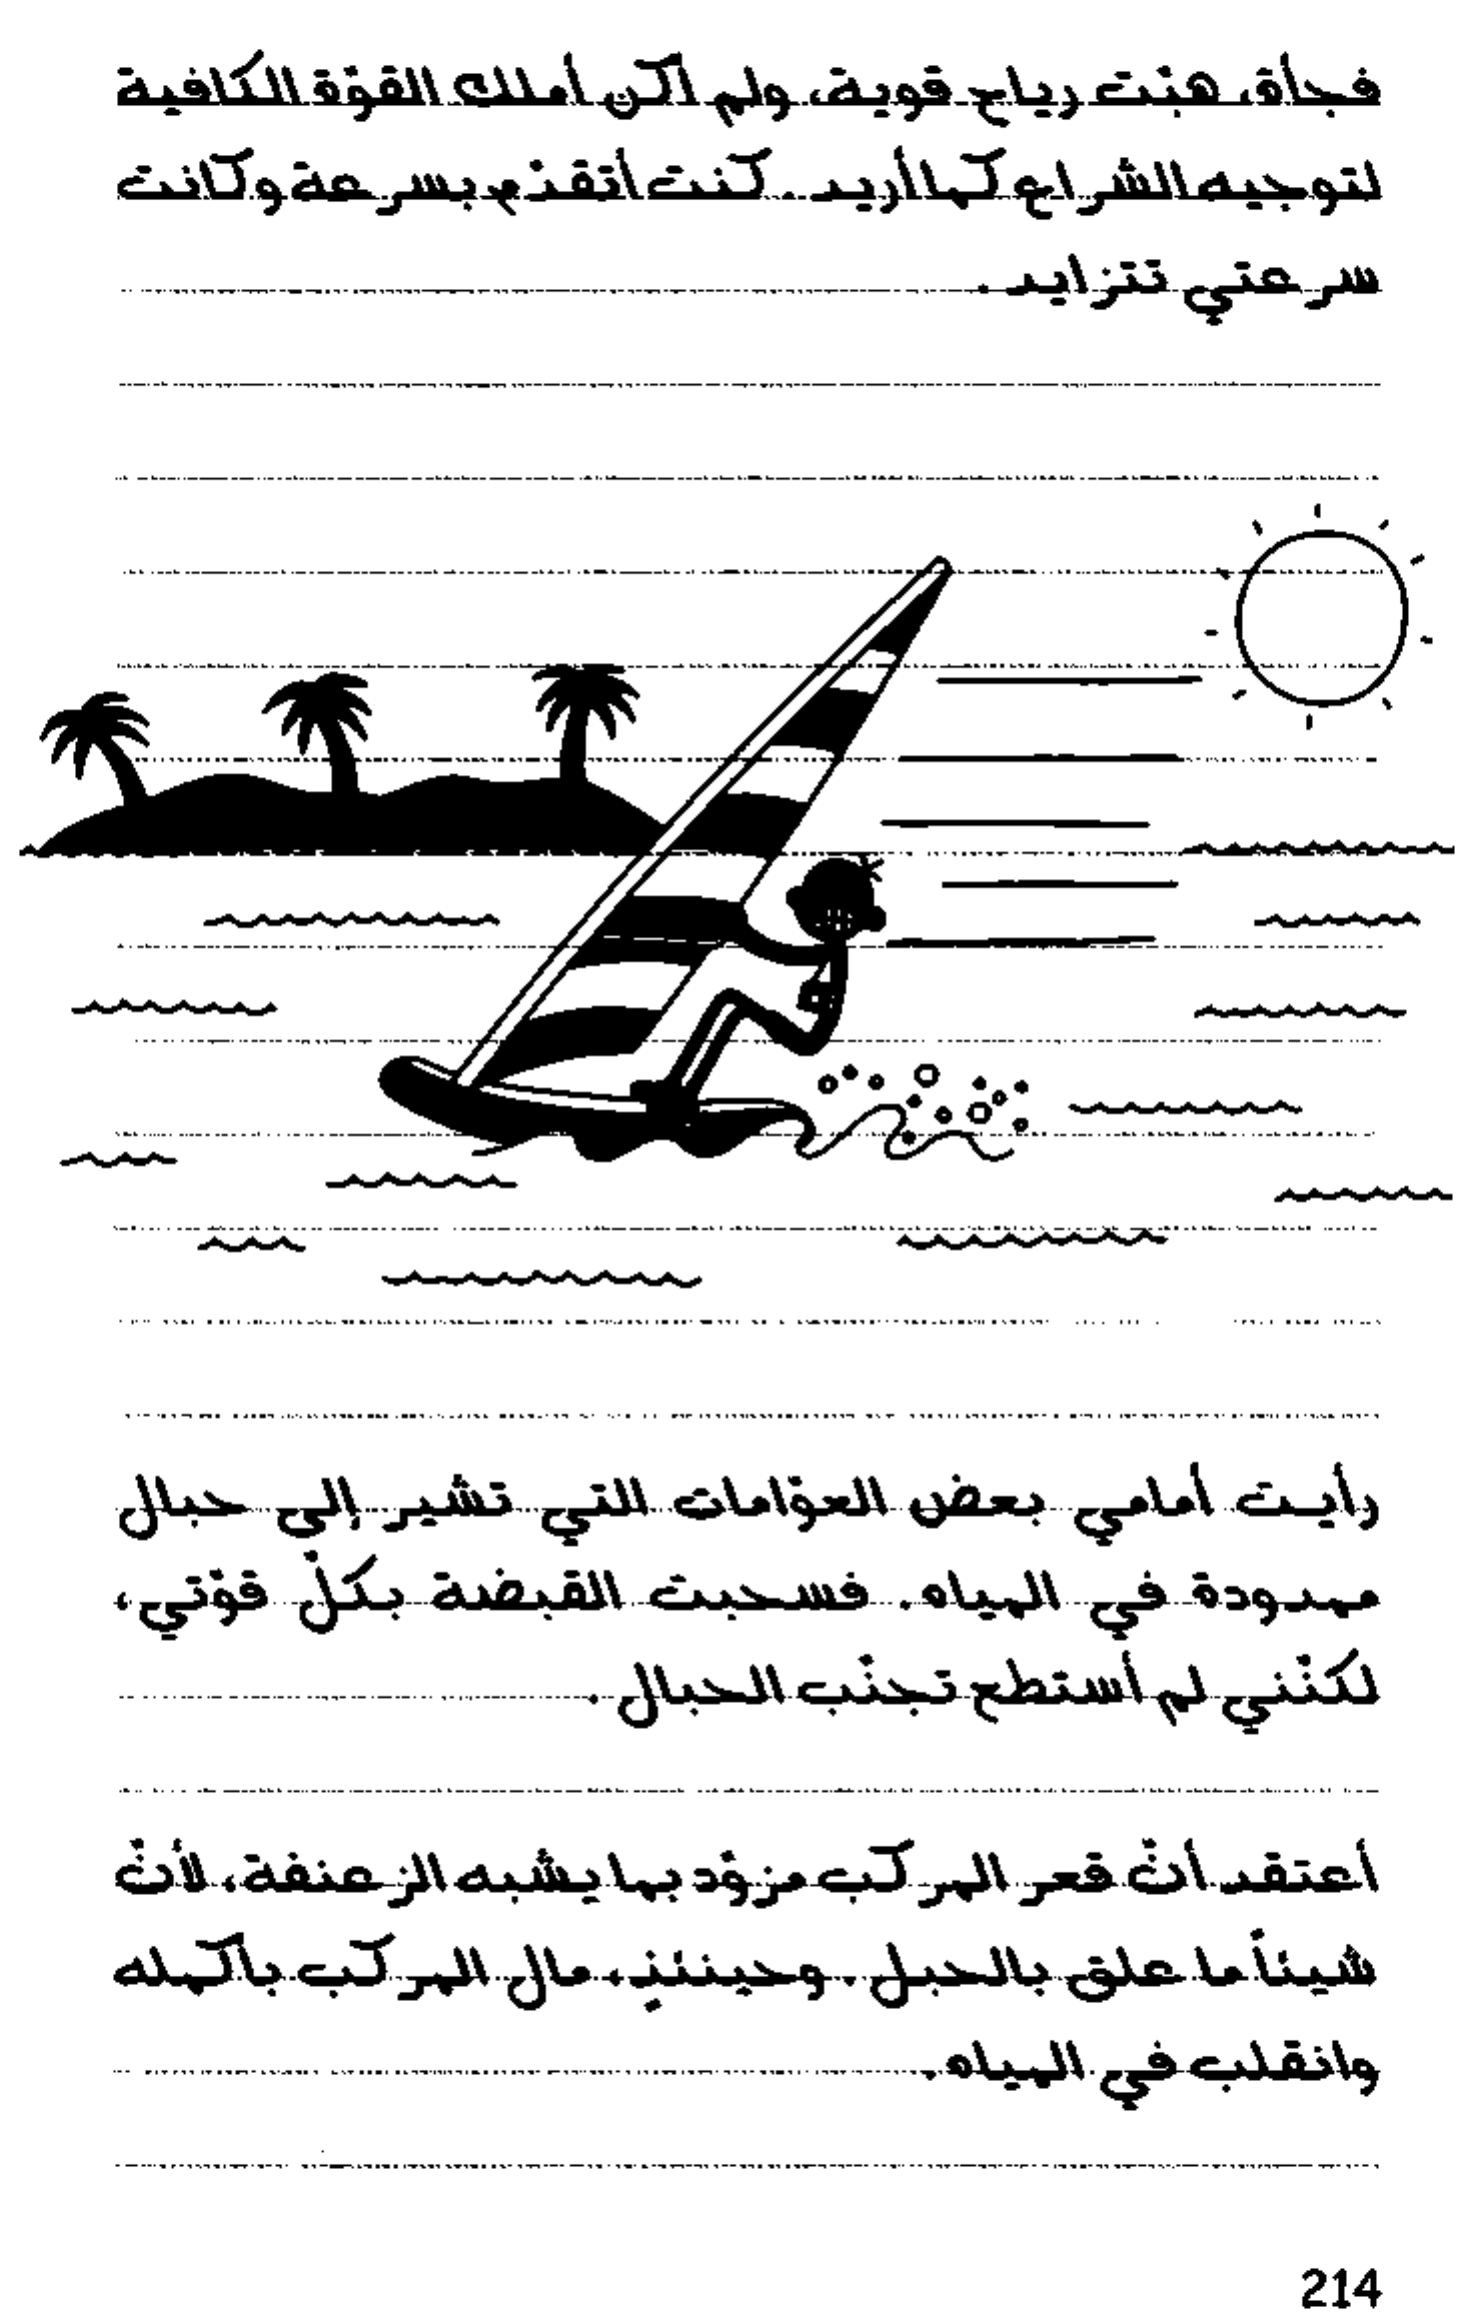 فجأة، هبّت رياح قوية، ولم أكن أملك القوّة الكافية
لتوجيه الشراع كما أريد. كنت أتقدّم بسرعة وكانت
سرعتي تتزايد.
رأيت أمامي بعض العوّامات التي تشير إلى حبال
ممدودة في المياه. فسحبت القبضة بكلّ قوّتي،
لكنّني لم أستطع تجنّب الحبال.
أعتقد أنّ قعر المركب مزوّد بما يشبه الزعنفة، لأنّ
شيئاً ما علق بالحبل. وحينئذٍ، مال المركب بأكمله
وانقلب في المياه.
214